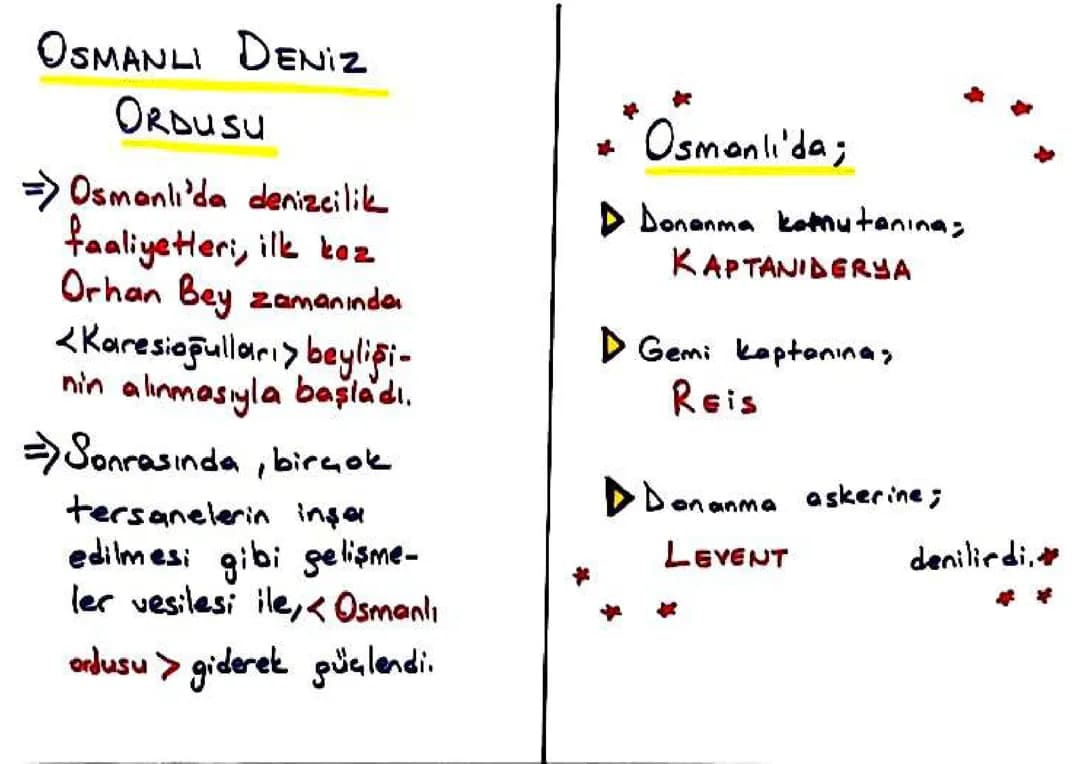 OSMANLI DENİZ
ORDUSU
=> Osmanlı'da denizcilik
faaliyetleri, ilk kez
Orhan Bey zamanında
<Karesioğulları> beyliği-
nin alınmasıyla başladı.
=> Sonrasında, birçok
tersanelerin inşa
edilmesi gibi gelişme-
ler vesilesi ile, <Osmanlı
ordusu> giderek güçlendi.
Osmanlı'da;
Donanma komutanına;
KAPTANIDERYA
Gemi kaptanına;
REİS
Donanma askerine;
LEVENT denilirdi.